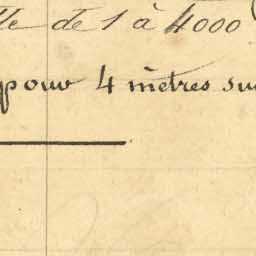 lle de 1 à 4000
pour 4 mètres su